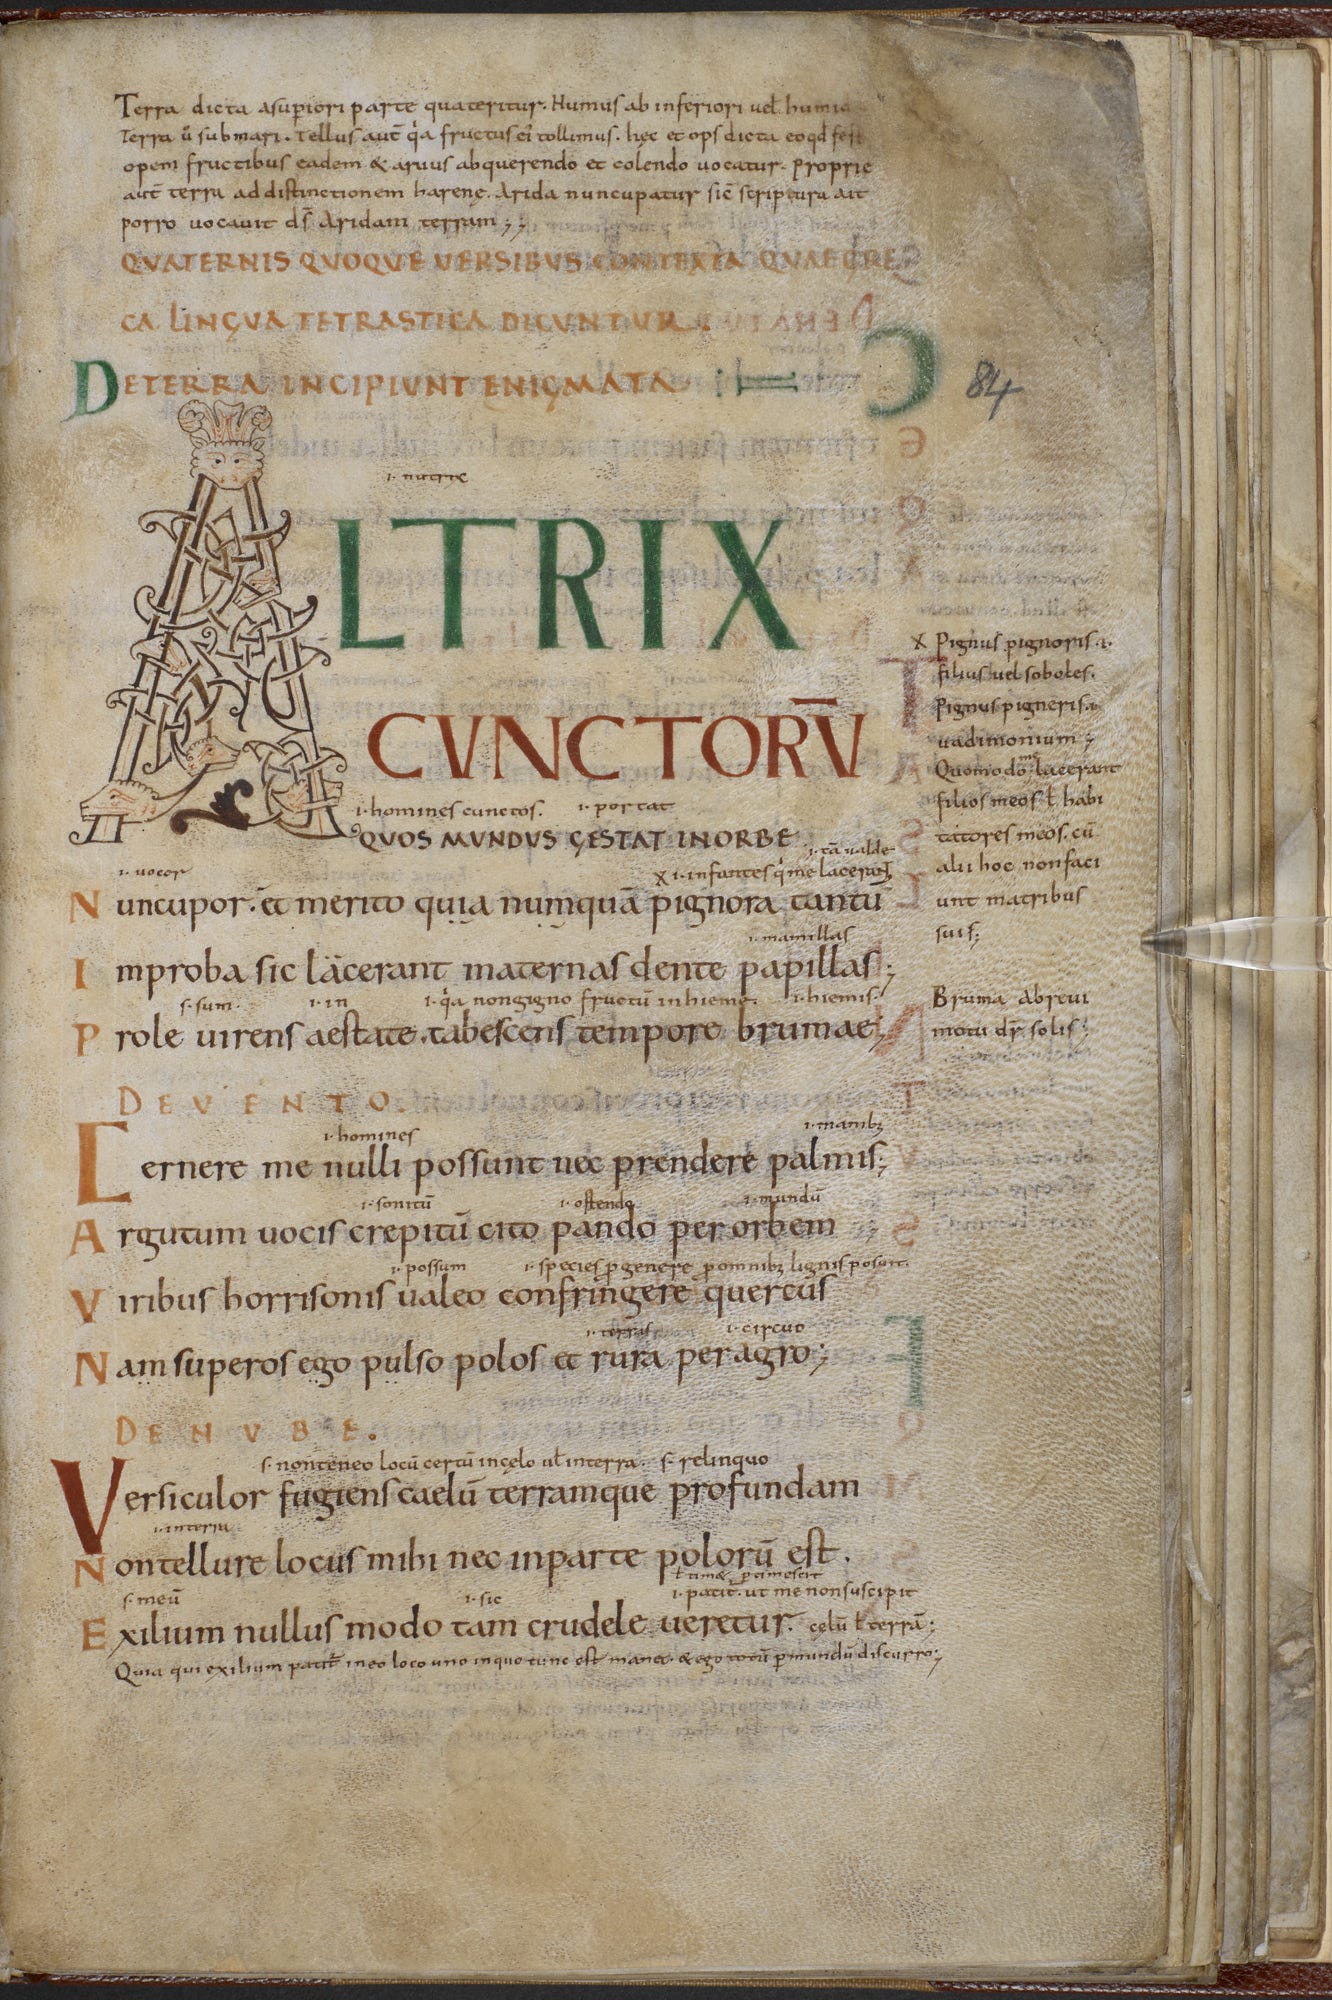 Terra dicta asuperiori parte quateritur. Humus ab inferiori uel humida
Terra ū submari. Tellus aut̄ q̍a fructus ei tollimus. hęc et ops dicta eoqd̄ fert
opem fructibus eadem & aruus abquerendo et colendo uocatur. Proprie
aut̄ terra addistinctionem harenę. Arida nuncupatur sic̄ scriptura ait
porro uocauit dī Aridam terram;;
QVATERNIS QVOQVE VERSIBVS CONTEXTA QVAEGRE
CA LINGVA TETRASTICA DICVNTVR:
DETERRA INCIPIVNT ENIGMATA:
84
.i. nutrix
ALTRIX
CVNCTORV̄
.i. homines cunctos. .i. portat
QVOS MVNDVS GESTAT INORBE
.i. tā ualde
.i. uocor x .i. infantes q̍ me lacerant
Nuncupor. et̄ merito quia numquā pignora tantū
.i. mamillas
Improba sic lacerant maternas dente papillas;
s. sum. .i. in .i. q̍a nongigno fructū inhieme. .i. hiemis.
Prole uirens aestate. tabescens tempore brumae;
x Pignus pignoris .i.
filius uel soboles.
Pignus pigneris .i.
uadimonium;
Quomodo me lacerant
filios meos ł habi
tatores meos. cū
alii hoc nonfaci
unt matribus
suis;
Bruma abreui
motu dr̄ solis;
DEVENTO.
.i. homines .i. manibꝫ
Cernere me nulli possunt nec prendere palmis;
.i. sonitū .i. ostendo .i. mundū
Argutum uocis crepitū cito pando per orbem
.i. possum .i. species p̄ genere p̄ omnibꝫ lignis posuit.
Viribus horrisonis ualeo confringere quercus
.i. terras .i. circuo
Nam superos ego pulso polos et rura peragro;
DENVBE.
s. nonteneo locū certū incęlo uł interra. s. relinquo
Versiculor fugiens caelū terramque profundam
.i. interra
Non tellure locus mihi nec inparte polorū est.
s. meū .i. sic .i. patit̄. ut me nonsuscipit
Exilium nullus modo tam crudele ueretur. cęlū ł terrā;
Quia qui exilium patit̄ ineo loco uno inquo tunc est manet. & ego totū p̄ mundū discurro;